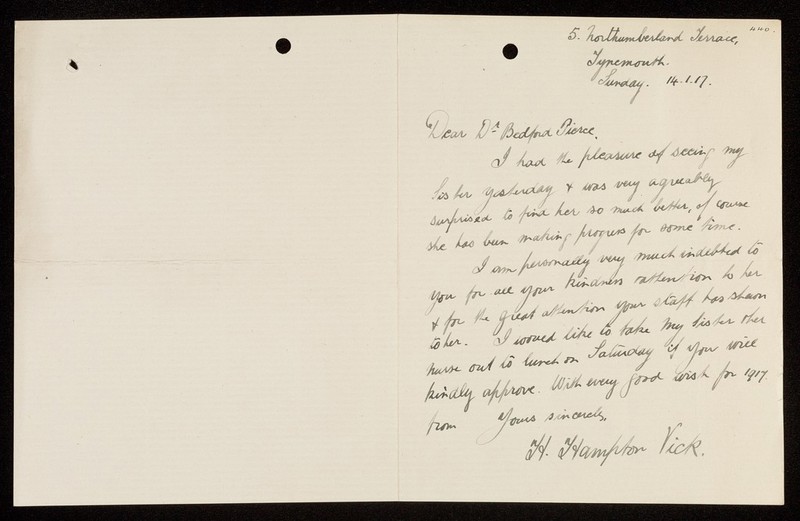 440.
5. Northumberland Terrace,
Tynemouth.
Sunday. 14.1.17.
Dear Dr Bedford Pierce,
I had the pleasure of seeing my
Sister yesterday & was very agreeably
surprised to find her so much better, of course
she has been making progress for some time.
I am personally very much indebted to
you for all your kindness & attention to her
& for the great attention your staff has shown
to her. I would like to take my sister & her
nurse out to lunch on Saturday if you will
kindly approve. With every good wish for 1917.
from Yours sincerely,
H. Hampton Vick.